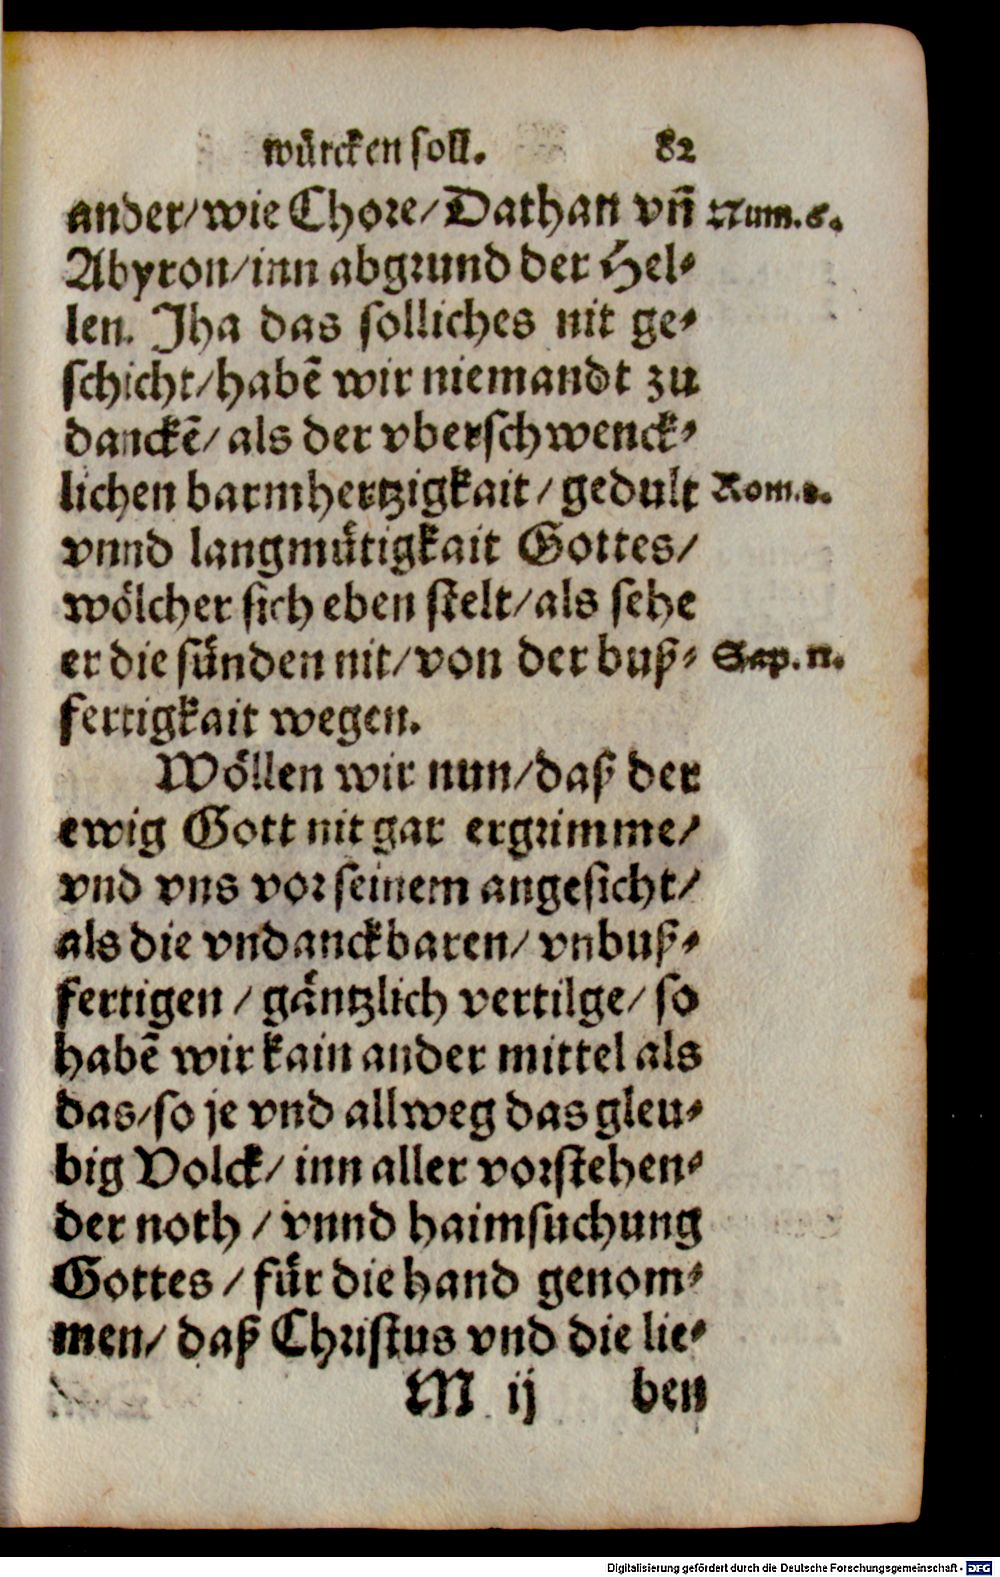 würcken soll. 82
ander/wie Chore/Dathan vñ Num.6.
Abyron/inn abgrund der Hel-
len. Jha das solliches nit ge-
schicht/habē wir niemandt zu
danckē/als der vberschwenck-
lichen barmhertzigkait/gedult Rom.2.
vnnd langmütigkait Gottes/
wölcher sich eben stelt/als sehe
er die sünden nit/von der buß- Sap.11.
fertigkait wegen.
Wöllen wir nun/daß der
ewig Gott nit gar ergrimme/
vnd vns vor seinem angesicht/
als die vndanckbaren/vnbuß-
fertigen/gäntzlich vertilge/so
habē wir kain ander mittel als
das/so je vnd allweg das gleu-
big Volck/inn aller vorstehen-
der noth/vnnd haimsuchung
Gottes/für die hand genom-
men/daß Christus vnd die lie-
M ij ben
Digitalisierung gefördert durch die Deutsche Forschungsgemeinschaft - DFG